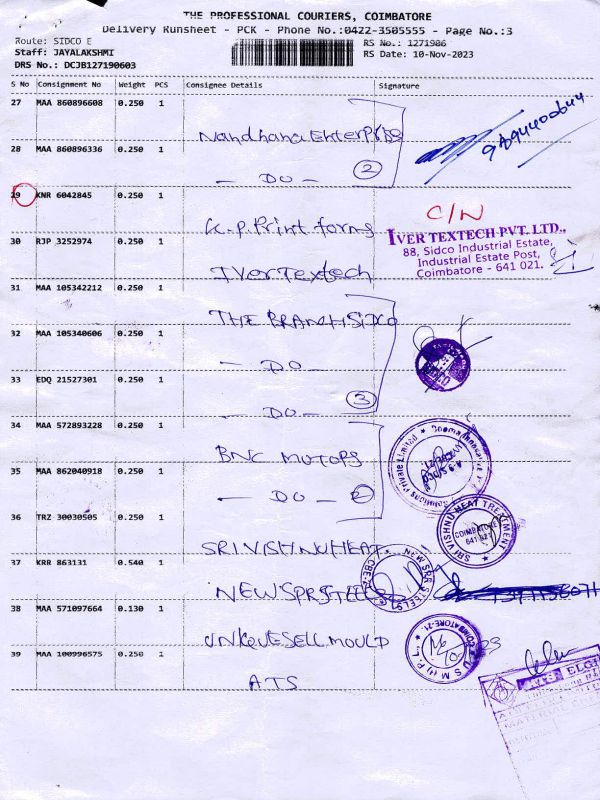 THE PROFESSIONAL COURIERS, COIMBATORE
Delivery Runsheet - PCK - Phone No.:0422-3505555 - Page No.:3
Route: SIDCO E
Staff: JAYALAKSHMI
DRS No.: DCJB127190603
RS No.: 1271986
RS Date: 10-Nov-2023
S No Consignment No Weight PCS Consignee Details Signature
27 MAA 860896608 0.250 1 Nandhana EnterPrise
28 MAA 860896336 0.250 1 - DO - 2
29 KNR 6042845 0.250 1 K.P. Print forms C/N
30 RJP 3252974 0.250 1 IVer Textech
IVER TEXTECH PVT. LTD.,
88, Sidco Industrial Estate,
Industrial Estate Post,
Coimbatore - 641 021.
31 MAA 105342212 0.250 1 THE BRANCH SIDCO
32 MAA 105340606 0.250 1 - DO -
33 EDQ 21527301 0.250 1 - DO - 3
34 MAA 572893228 0.250 1 BNC MOTORS
35 MAA 862040918 0.250 1 - DO - 2
36 TRZ 30030505 0.250 1 SRI VISHNU HEAT
SRI VISHNU HEAT TREATMENT
COIMBATORE
641 021
37 KRR 863131 0.540 1 NEW SPR STEELS
NEW SPR STEELS
38 MAA 571097664 0.130 1 UNIQUE SELL MOULD
COIMBATORE-21.
39 MAA 100996575 0.250 1 ATS
ELGI